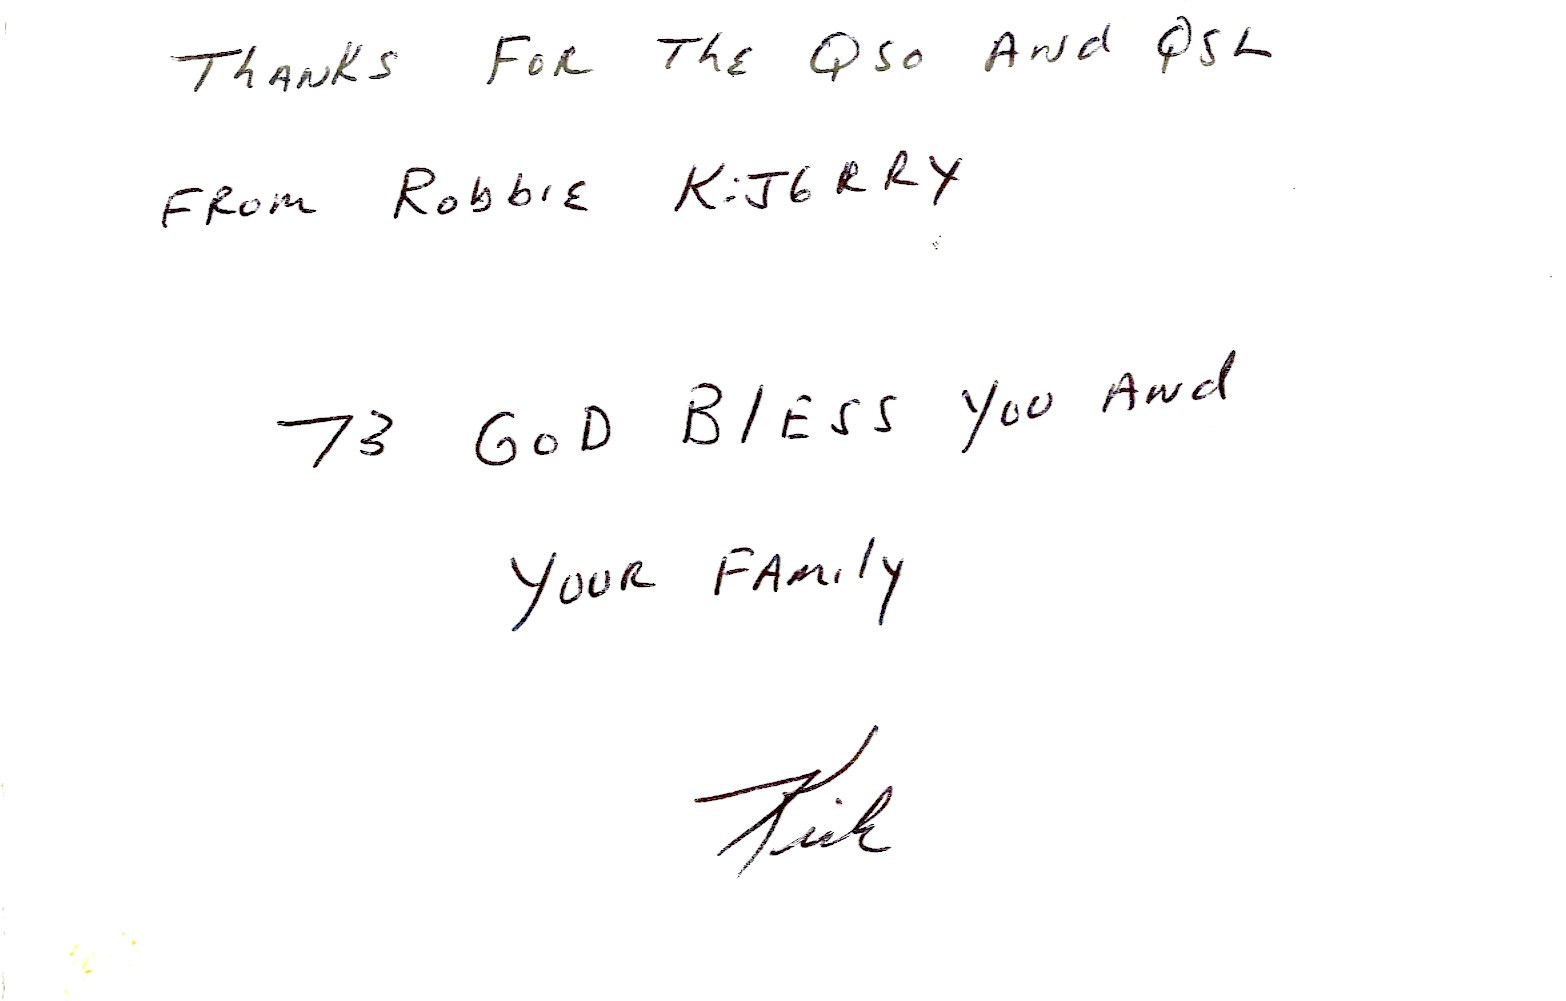 Thanks For The QSO And QSL
From Robbie KiJ6RRY
73 God Bless You And
Your Family
Kirk